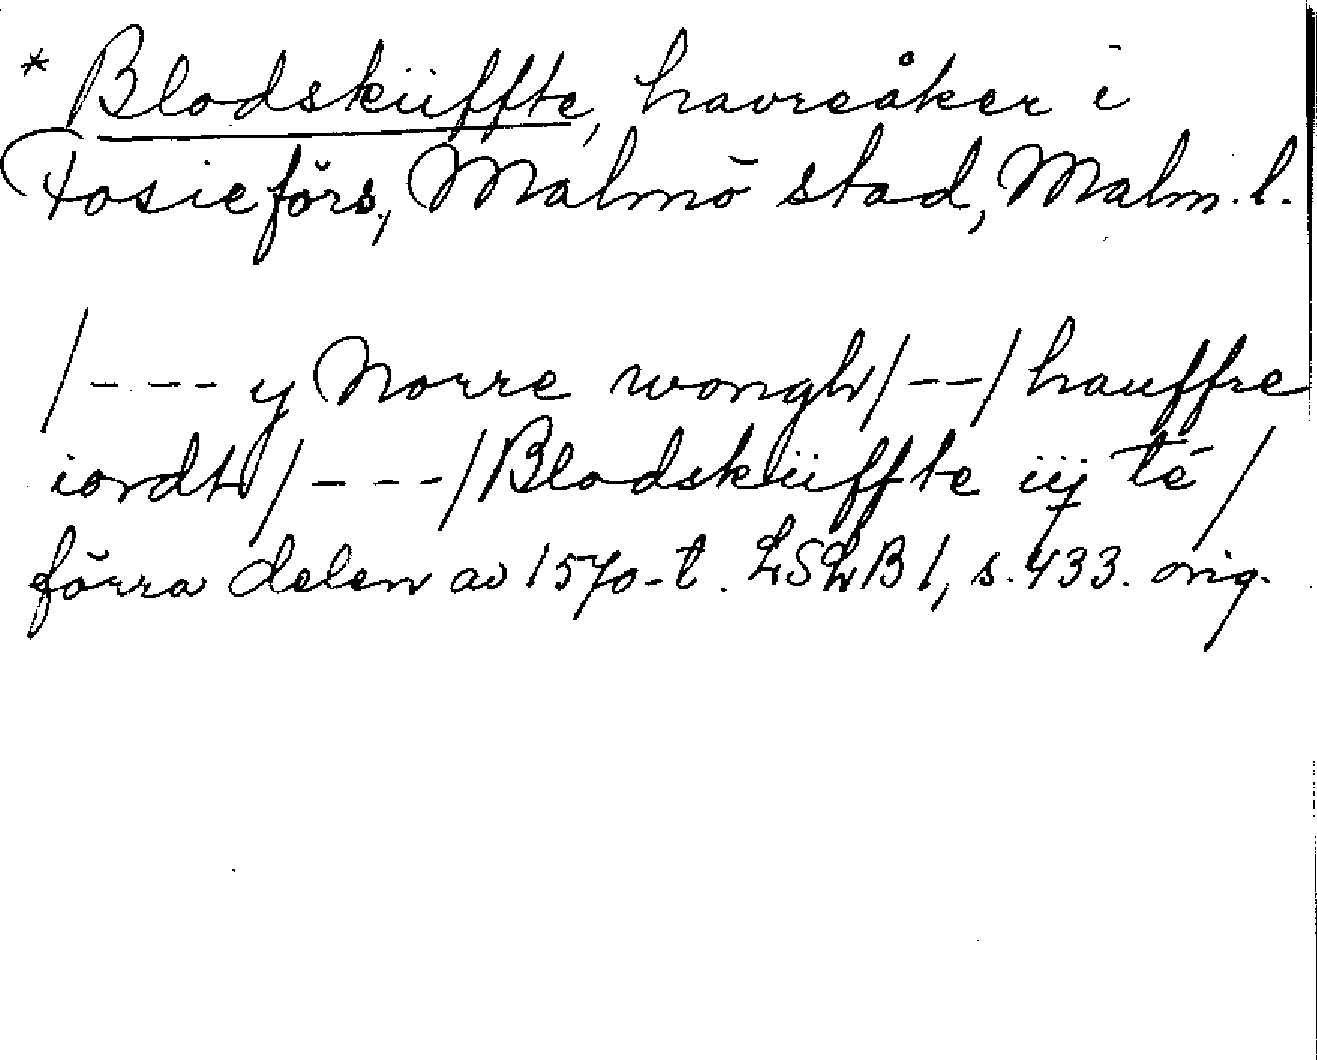 * Blodsküffte, havreåker i
Fosie förs, Malmö stad, Malm. l.
/- --- y Norre wongh/--/hauffre
iordt/----/Blodsküffte iij té /
förra delen av 1570-t. LSLB 1, s. 433. orig.